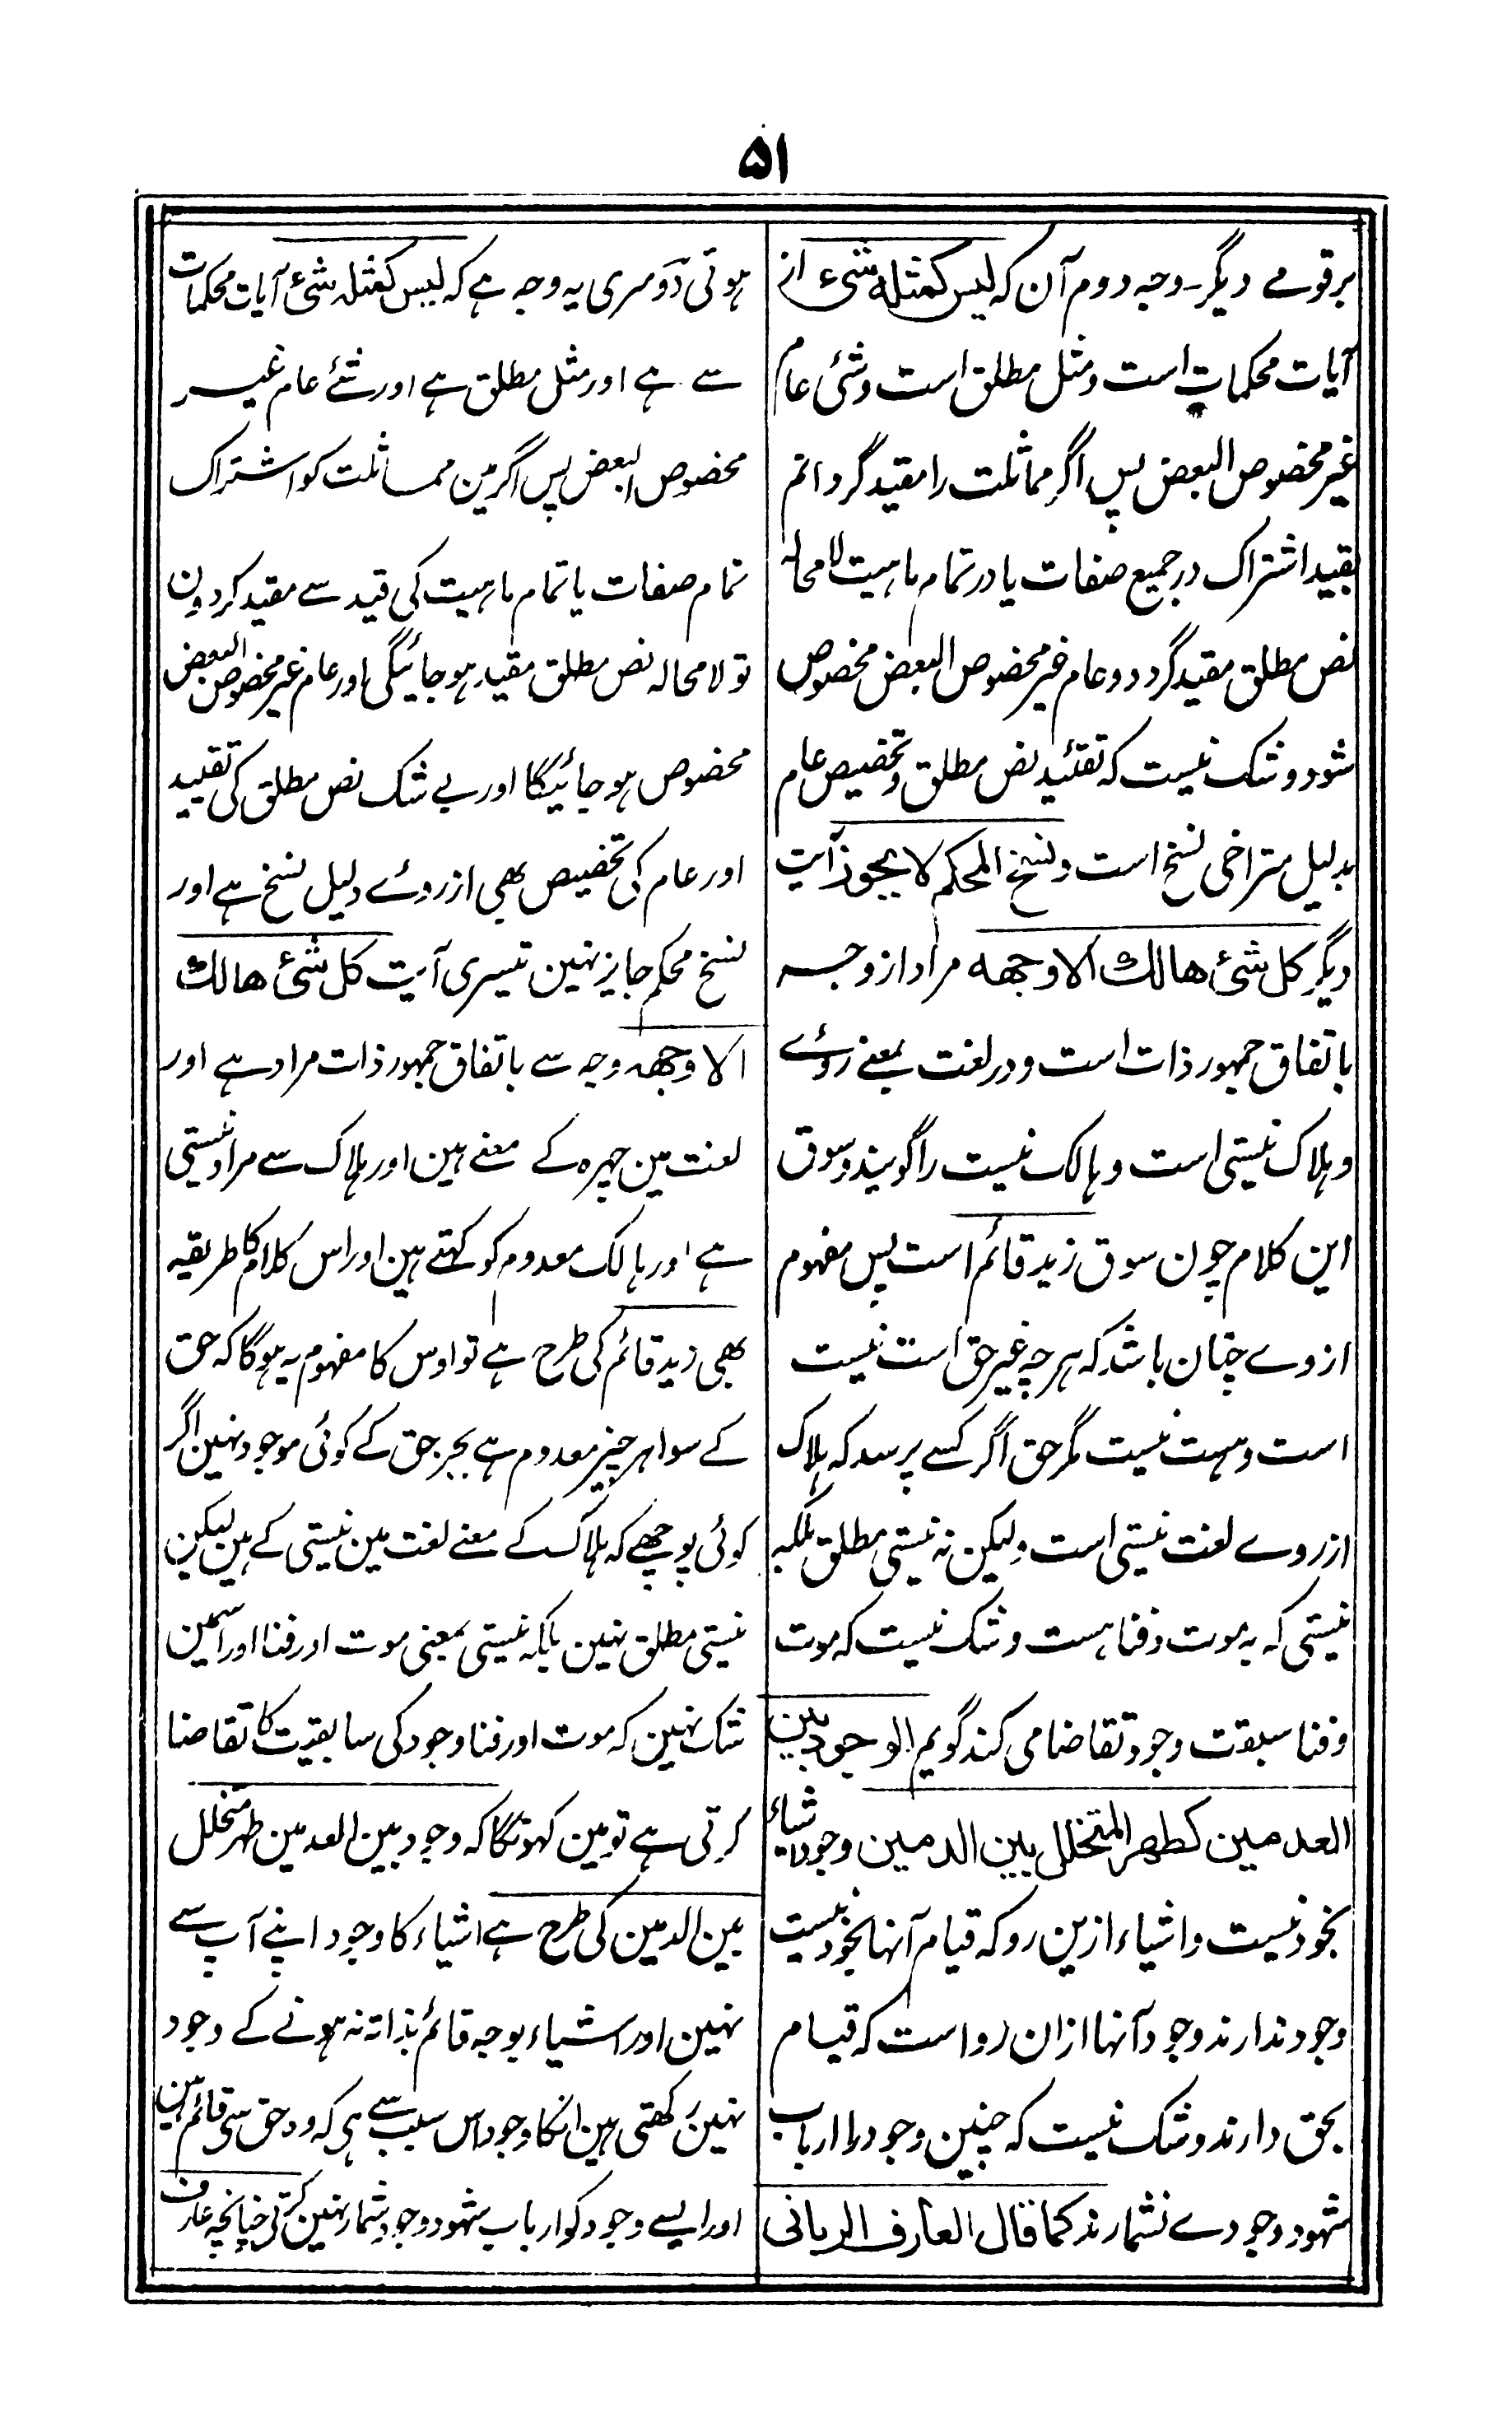 ۵۱
بر قومے دیگر۔ وجہ دوم آن کہ لیس کمثلہ شیء از
آیات محکمات است و مثل مطلق است و شئ عام
غیر مخصوص البعض پس اگر مماثلت را مقید گردانم
بقید اشتراک در جمیع صفات یا در تمام ماہیت لا محالہ
نص مطلق مقید گردد و عام غیر مخصوص البعض مخصوص
شود و شک نیست کہ تقئید نص مطلق و تخصیص عام
بدلیل متراخی نسخ است و نسخ المحکم لا یجوز آیت
دیگر کل شئ ھالك الا وجھہ مراد از وجہ
باتفاق جمہور ذات است و در لغت بمعنے روئے
و ہلاک نیستی است و ہالک نیست را گویند و سوق
این کلام چون سوق زید قائم است پس مفہوم
از وے چنان باشد کہ ہر چہ غیر حق است نیست
است و ہست نیست مگر حق اگر کسے پرسد کہ ہلاک
از روے لغت نیستی است و لیکن نہ نیستی مطلق بلکہ
نیستی کہ بہ موت و فنا ہست و شک نیست کہ موت
و فنا سبقت وجود تقاضا می کند گویم الوجود بین
العدمین کطھر المتخلل بین الدمین وجود اشیاء
بخود نیست و اشیاء ازین رو کہ قیام آنہا بخود نیست
وجود ندارند وجود آنہا ازان رو است کہ قیام
بحق دارند و شک نیست کہ چنین وجود را ارباب
شہود وجودے نشمارند کما قال العارف الربانی
ہوئی دوسری یہ وجہ ہے کہ لیس کمثلہ شئ آیات محکمات
سے ہے اور مثل مطلق ہے اور شئے عام غیر
مخصوص البعض پس اگر مین مماثلت کو اشتراک
تمام صفات یا تمام ماہیت کی قید سے مقید کردون
تو لا محالہ نص مطلق مقید ہو جائیگی اور عام غیر مخصوص البعض
مخصوص ہو جائیگا اور بے شک نص مطلق کی تقیید
اور عام کی تخصیص بھی از روئے دلیل نسخ ہے اور
نسخ محکم جایز نہین تیسری آیت کل شئ ھالك
الا وجھہ وجہ سے باتفاق جمہور ذات مراد ہے اور
لغت مین چہرہ کے معنے ہین اور ہلاک سے مراد نیستی
ہے اور ہالک معدوم کو کہتے ہین اور اس کلام کا طریقہ
بھی زید قائم کی طرح ہے تو اوس کا مفہوم یہ ہوگا کہ حق
کے سوا ہر چیز معدوم ہے بجز حق کے کوئی موجود نہین اگر
کوئی پوچھے کہ ہلاک کے معنے لغت مین نیستی کے ہین لیکن
نیستی مطلق نہین بلکہ نیستی بمعنی موت اور فنا اور اسمین
شک نہین کہ موت اور فنا وجود کی سابقیت کا تقاضا
کرتی ہے تو مین کہونگا کہ وجود بین العدمین طہر متخلل
بین الدمین کی طرح ہے اشیاء کا وجود اپنے آپ سے
نہین اور اشیاء بوجہ قائم بذاتہ نہ ہونے کے وجود
نہین رکھتی ہین انکا وجود اس سبب سے ہی کہ وہ حق سی قائم ہین
اور ایسے وجود کو ارباب شہود وجود شمار نہین کرتی چنانچہ عارف